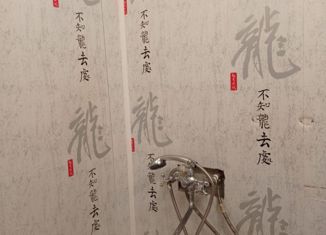 不知龍去處
不知龍去處
龍
不知龍去處
龍
龍
不知龍去處
不知龍去處
龍